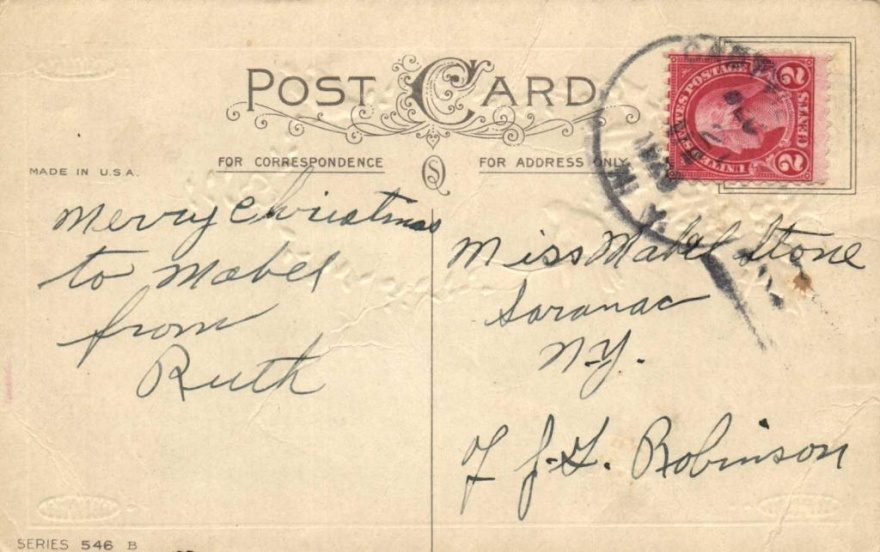 POST CARD
MADE IN U.S.A.
FOR CORRESPONDENCE
FOR ADDRESS ONLY
Merry Christmas
to Mabel
from
Ruth
Miss Mabel Stone
Saranac
N.Y.
J. G. Robinson
2 UNITED STATES POSTAGE 2
DEC
N.Y.
SERIES 546 B